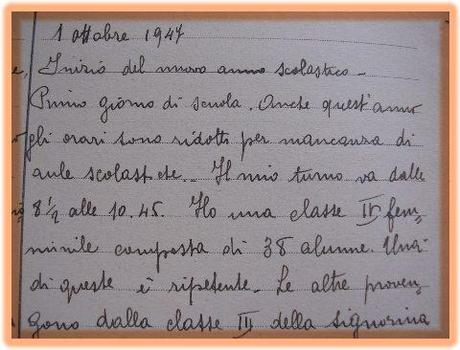 1 ottobre 1947
Inizio del nuovo anno scolastico -
Primo giorno di scuola. Anche quest'anno
gli orari sono ridotti per mancanza di
aule scolastiche. - Il mio turno va dalle
8 1/2 alle 10.45. Ho una classe IV fem=
minile composta di 38 alunne. Una
di queste è ripetente. Le altre proven=
gono dalla classe III della signorina